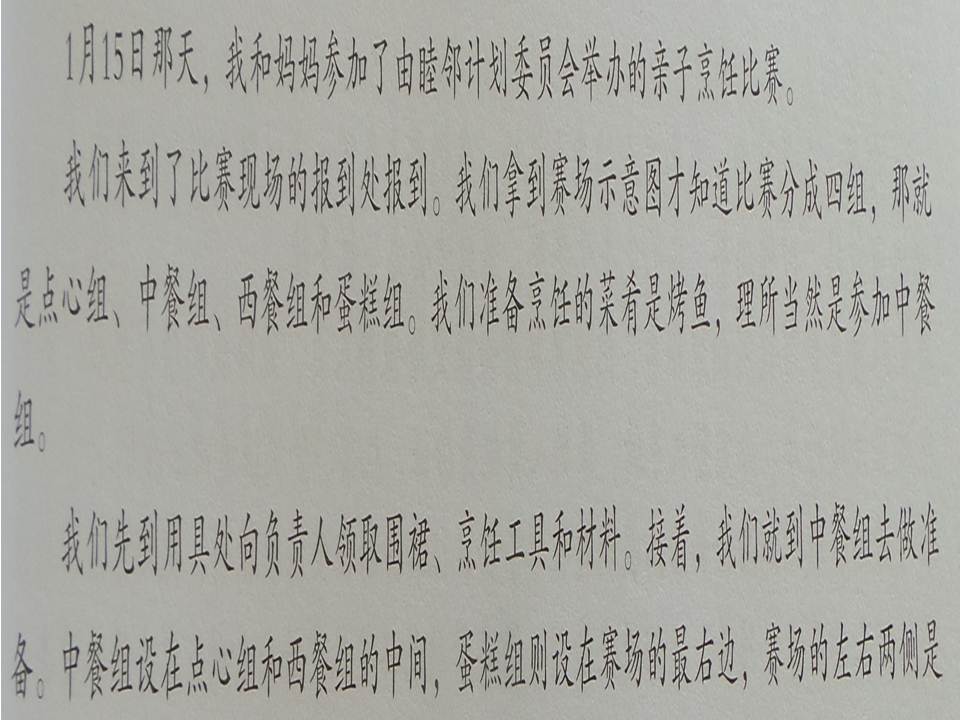 1月15日那天，我和妈妈参加了由睦邻计划委员会举办的亲子烹饪比赛。
我们来到了比赛现场的报到处报到。我们拿到赛场示意图才知道比赛分成四组，那就
是点心组、中餐组、西餐组和蛋糕组。我们准备烹饪的菜肴是烤鱼，理所当然是参加中餐
组。
我们先到用具处向负责人领取围裙、烹饪工具和材料。接着，我们就到中餐组去做准
备。中餐组设在点心组和西餐组的中间，蛋糕组则设在赛场的最右边，赛场的左右两侧是